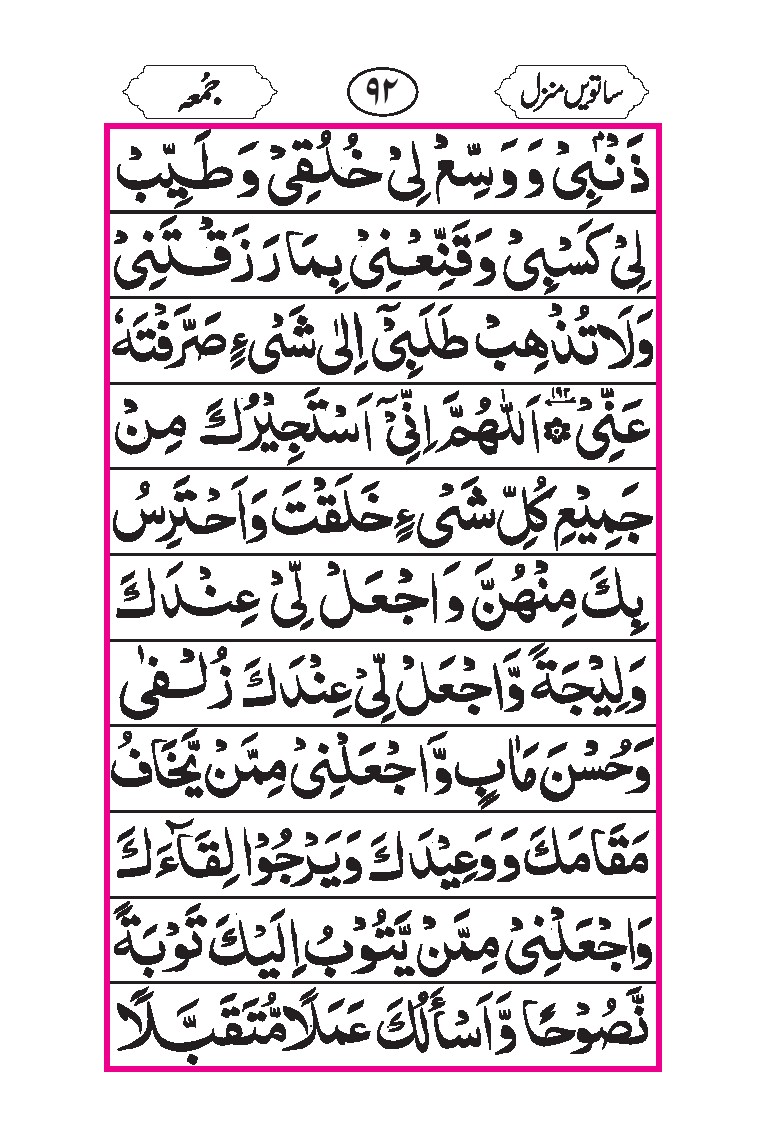 ساتویں منزل ۹۲ جمعہ
ذَنْۢبِیْ وَ وَسِّعْ لِیْ خُلُقِیْ وَ طَیِّبْ
لِیْ كَسْبِیْ وَ قَنِّعْنِیْ بِمَا رَزَقْتَنِیْ
وَلَا تُذْهِبْ طَلَبِیْۤ اِلٰی شَیْءٍ صَرَّفْتَهٗ
عَنِّیْ ۱۹۲ اَللّٰهُمَّ اِنِّیْۤ اَسْتَجِیْرُكَ مِنْ
جَمِیْعِ كُلِّ شَیْءٍ خَلَقْتَ وَ اَحْتَرِسُ
بِكَ مِنْهُنَّ وَ اجْعَلْ لِّیْ عِنْدَكَ
وَلِیْجَةً وَّاجْعَلْ لِّیْ عِنْدَكَ زُلْفٰی
وَحُسْنَ مَاٰبٍ وَّاجْعَلْنِیْ مِمَّنْ یَّخَافُ
مَقَامَكَ وَ وَعِیْدَكَ وَیَرْجُوْا لِقَآءَكَ
وَاجْعَلْنِیْ مِمَّنْ یَّتُوْبُ اِلَیْكَ تَوْبَةً
نَّصُوْحًا وَّ اَسْأَلُكَ عَمَلًا مُّتَقَبَّلًا